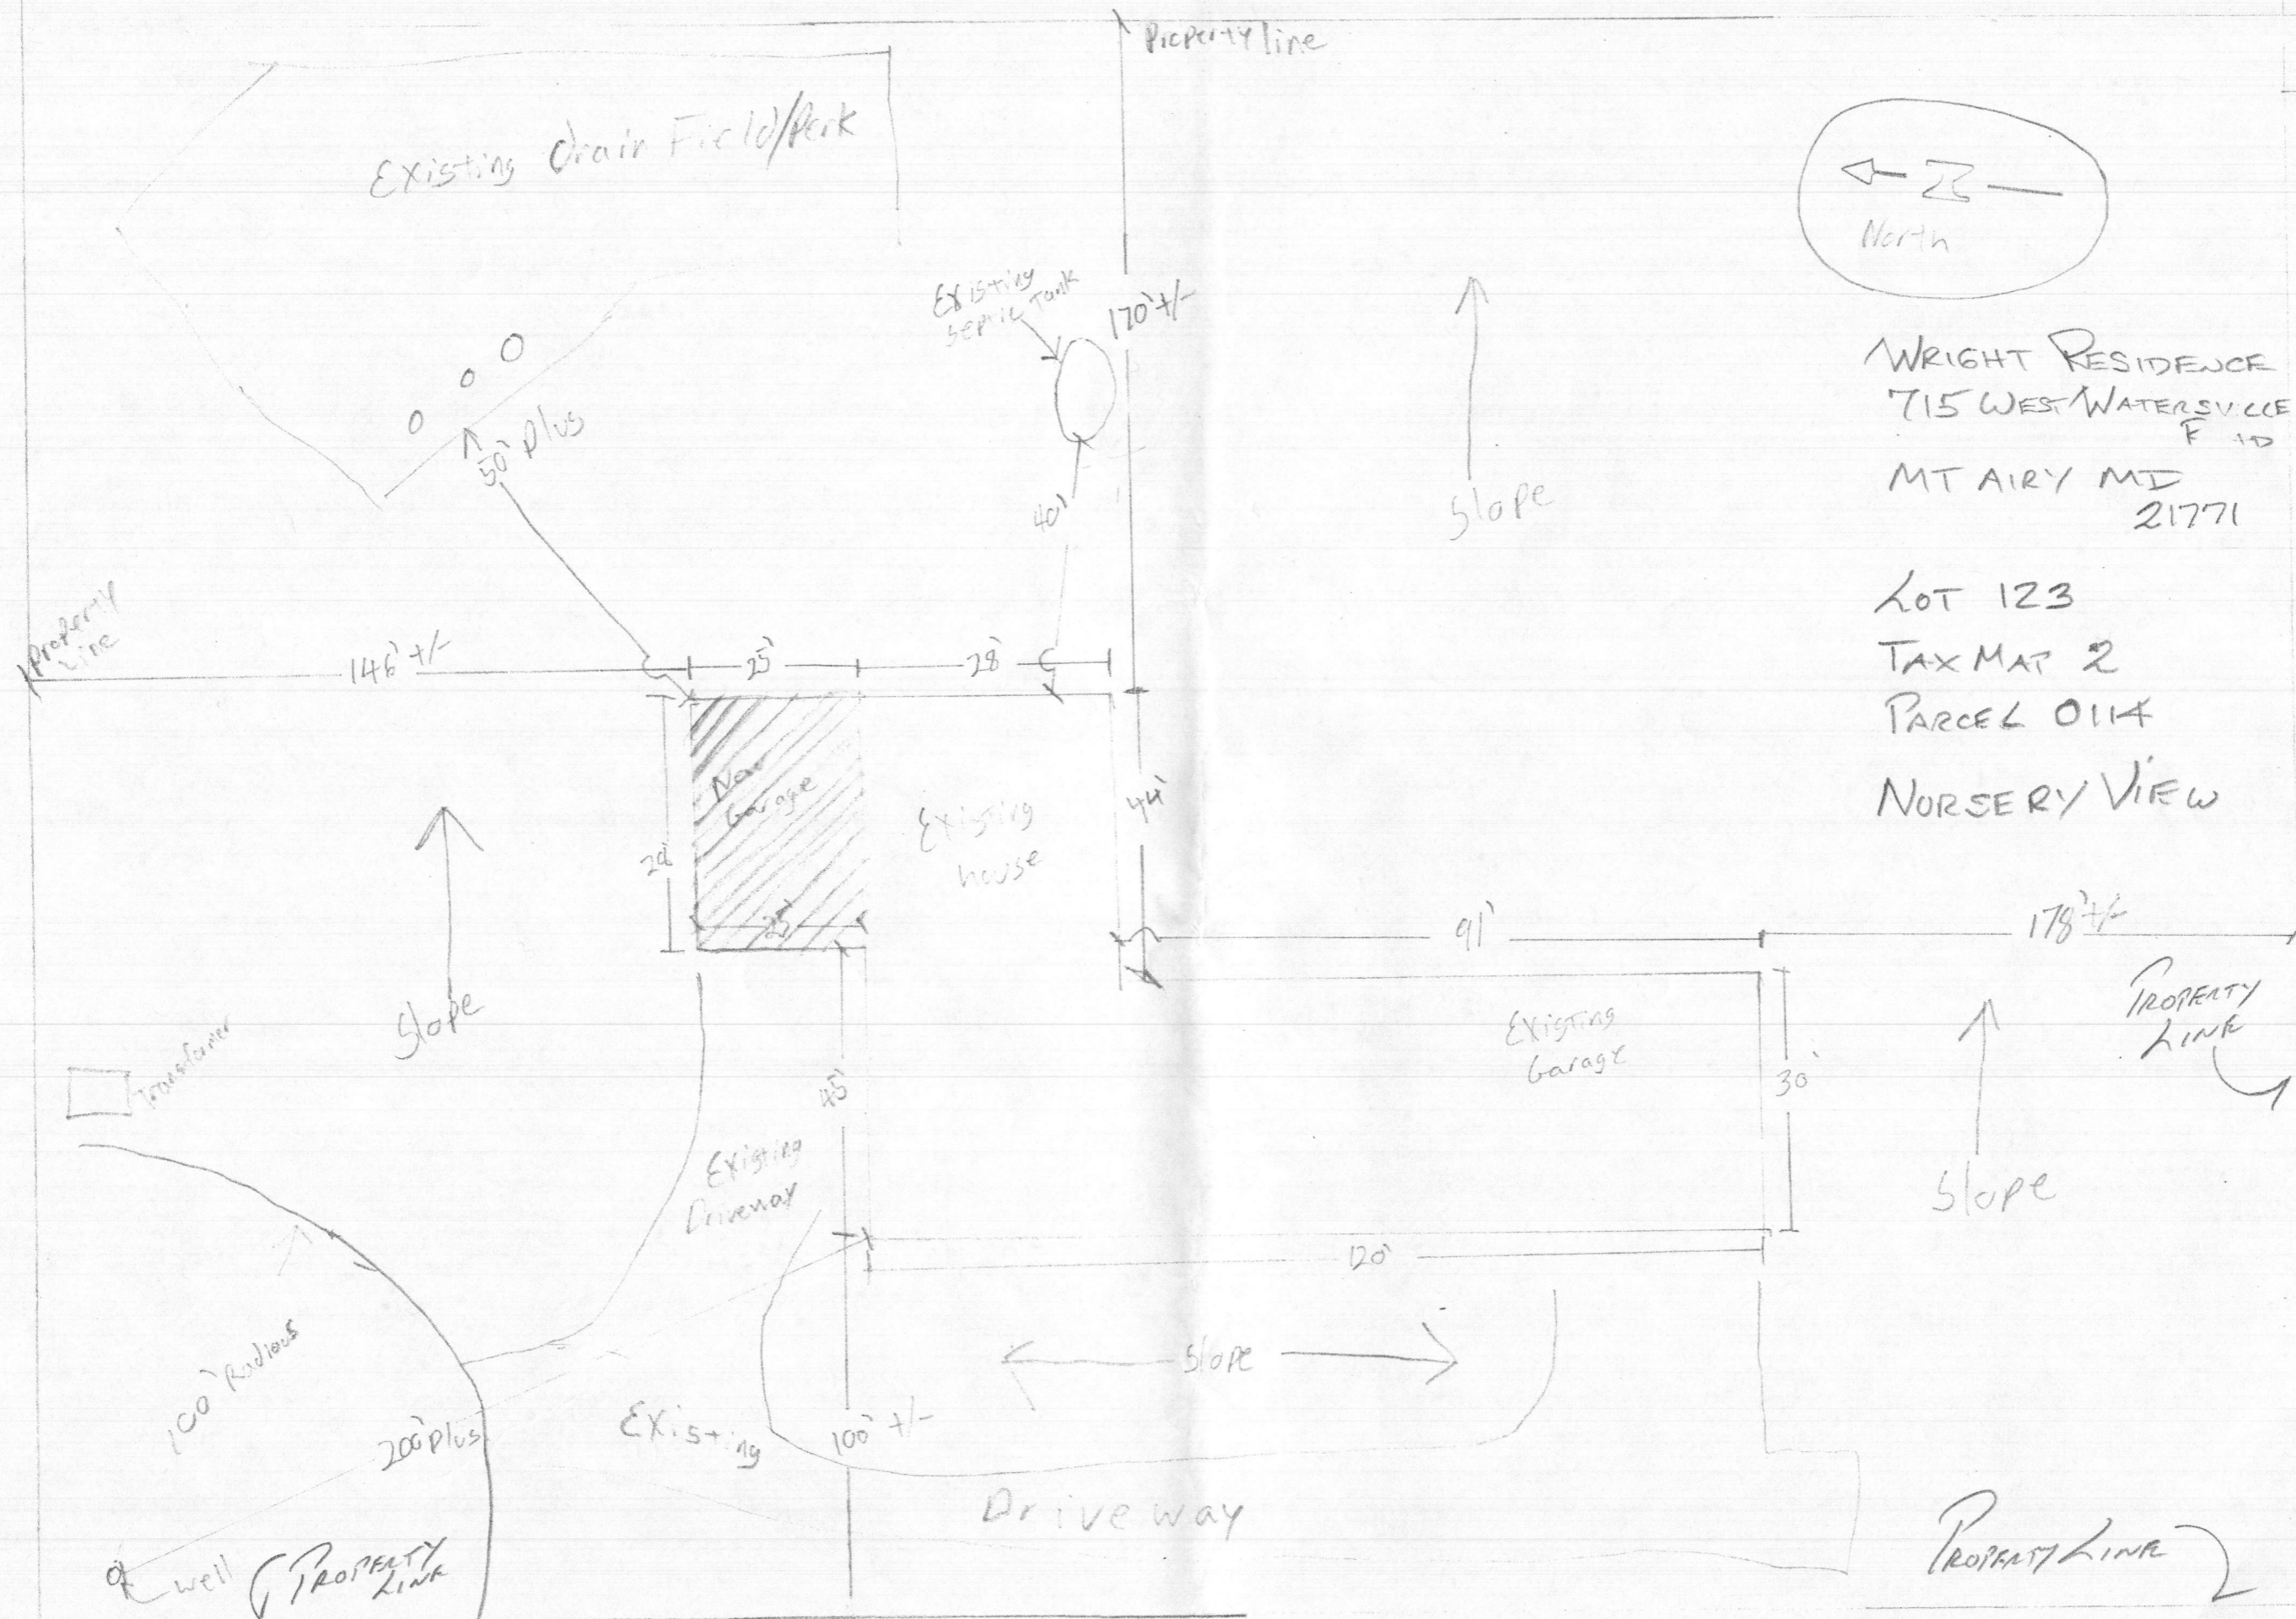 Property line
Existing drain Field/Perk
North
Existing
Septic Tank
170' +/-
WRIGHT RESIDENCE
715 WEST WATERSVILLE
MT AIRY MD
21771
50' plus
40'
Slope
LOT 123
TAX MAP 2
PARCEL 0114
NORSERY VIEW
Property
Line
146' +/-
25'
28'
New
Garage
Existing
house
44'
28'
25'
91'
178' +/-
PROPERTY
LINE
Slope
Transformer
Existing
Garage
30'
45'
Existing
Driveway
Slope
120'
100' Radious
Slope
200' plus
Existing
100' +/-
Driveway
well
PROPERTY
LINE
PROPERTY LINE